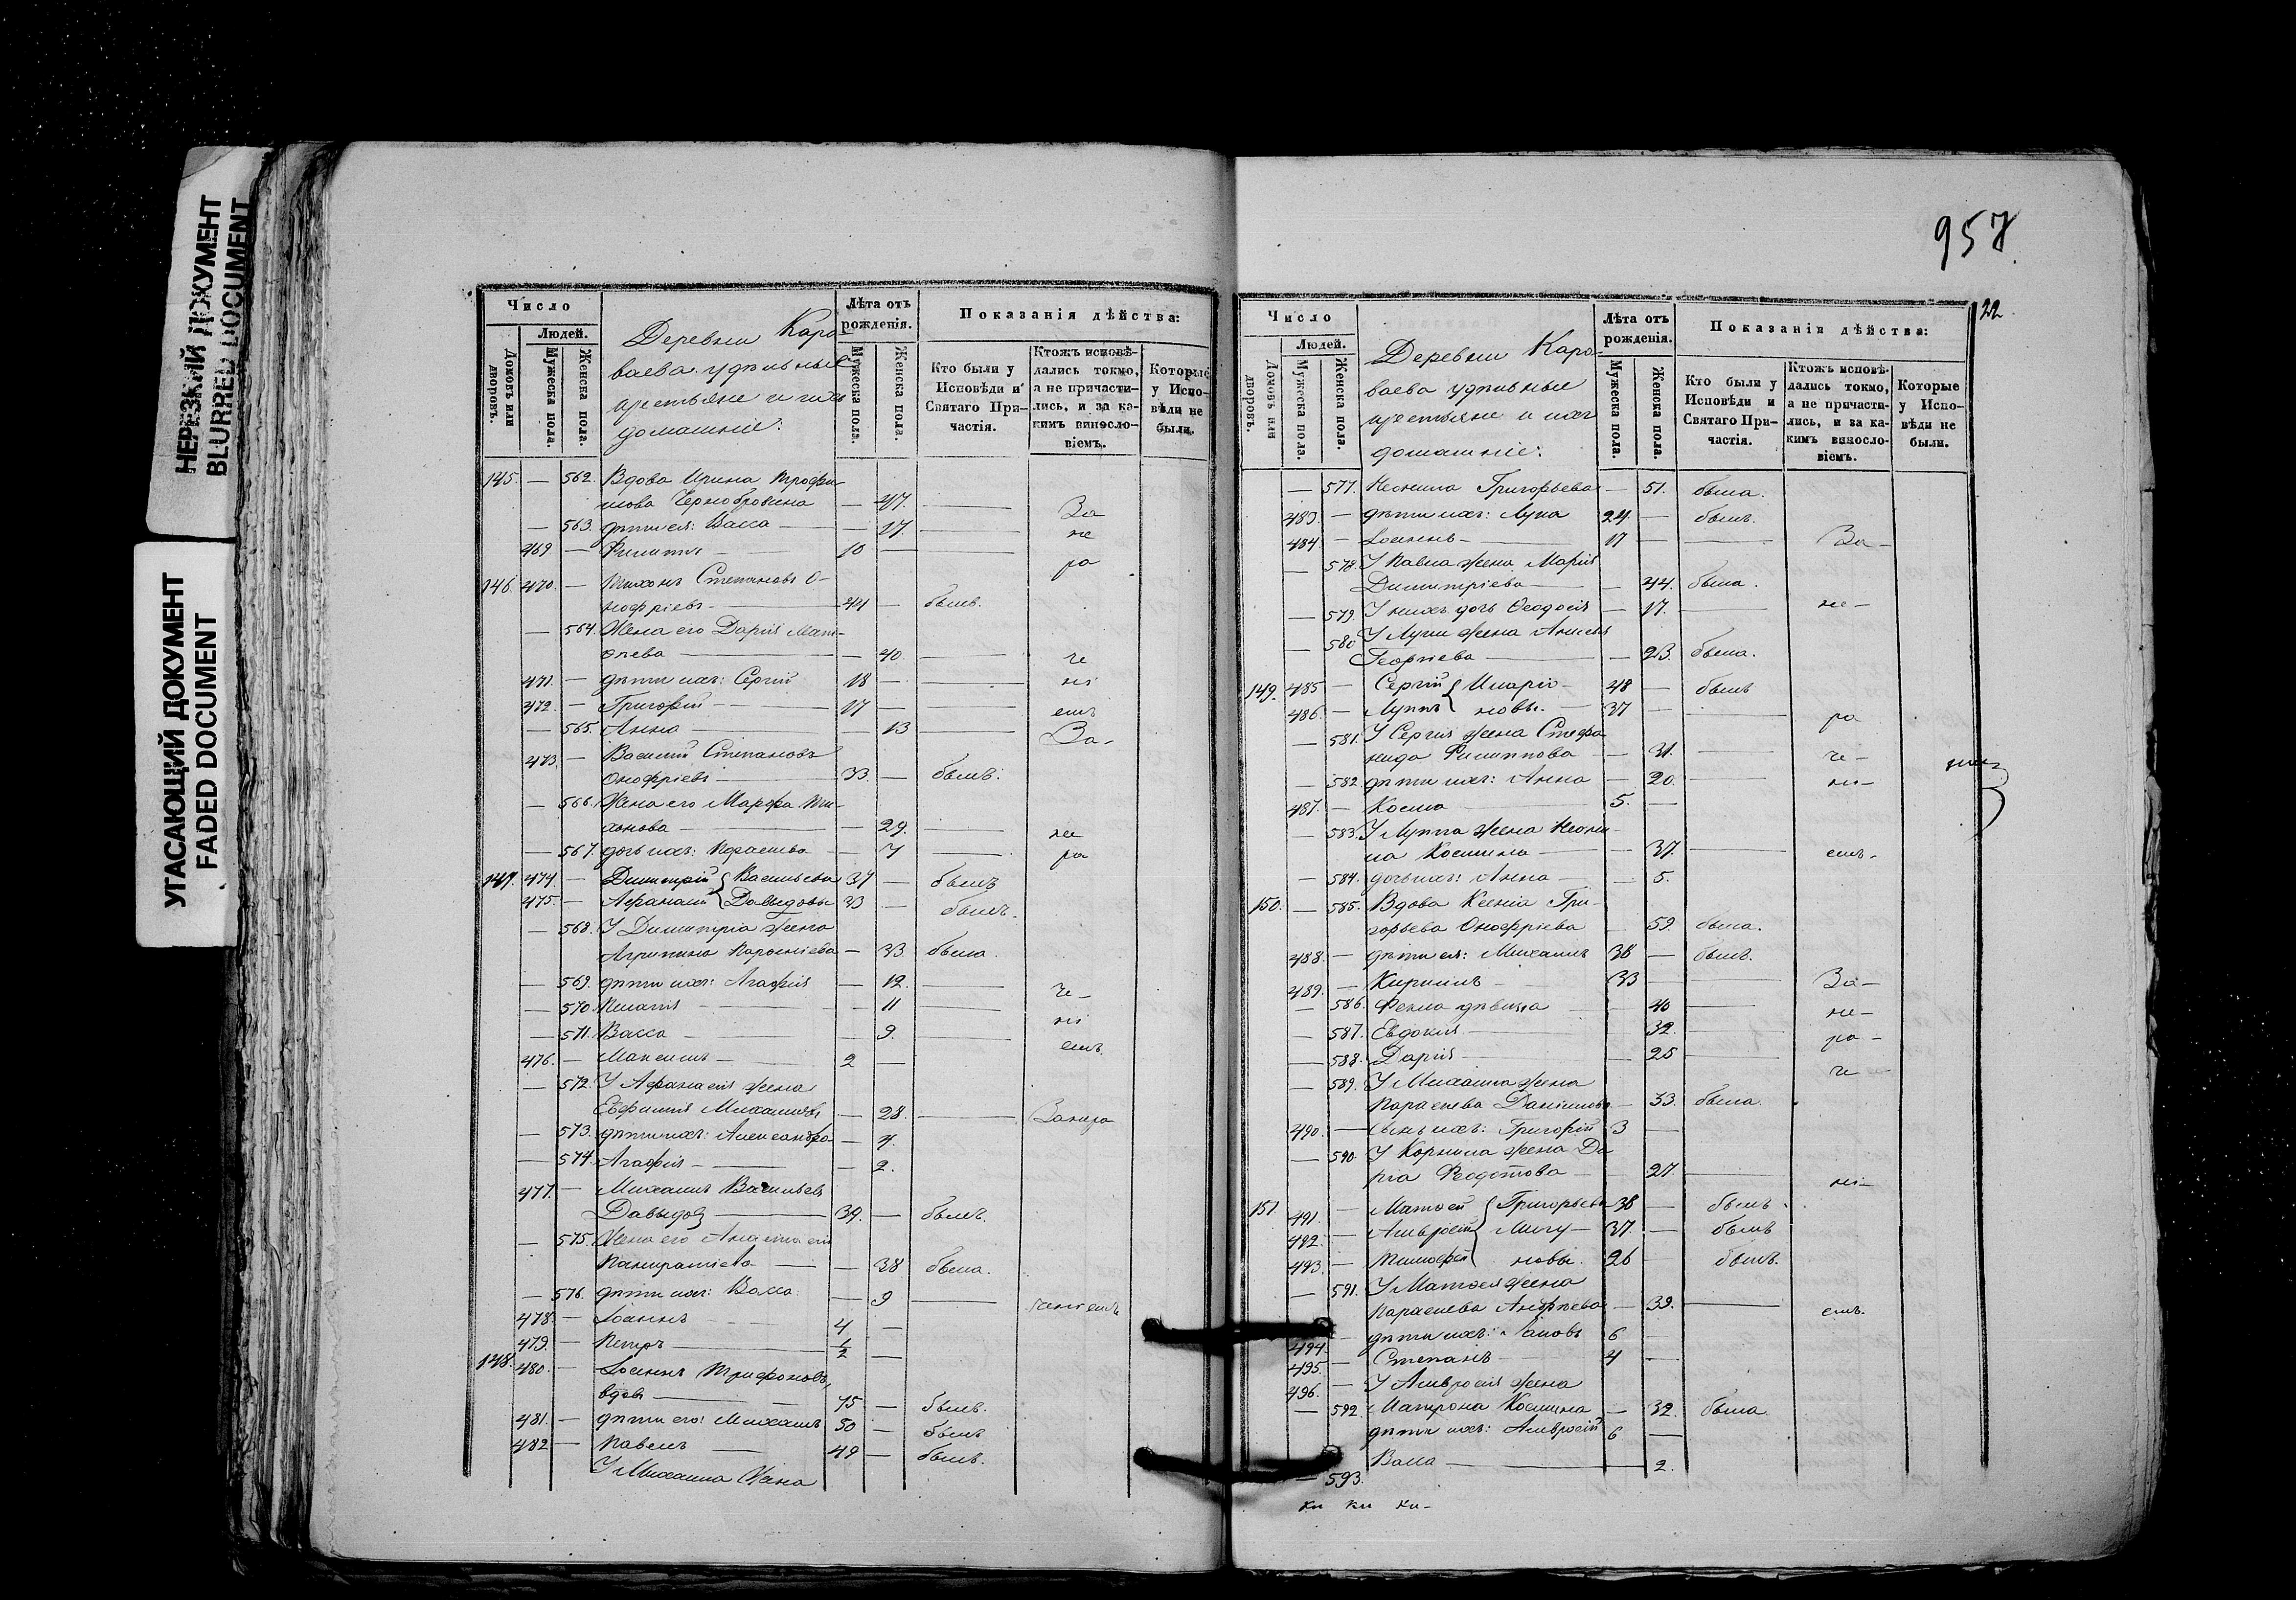 НЕРЕЗКИЙ ДОКУМЕНТ
BLURRED DOCUMENT
УГАСАЮЩИЙ ДОКУМЕНТ
FADED DOCUMENT
Число
Людей.
Домовъ или дворовъ.
Мужеска пола.
Женска пола.
Деревни Кара-
ваева удѣльные
крестьяне и ихъ
домашніе:
Лѣта отъ рожденія.
Мужеска пола.
Женска пола.
Показанія дѣйства:
Кто были у Исповѣди и Святаго При-частія.
Ктожъ исповѣ-дались токмо, а не причасти-лись, и за ка-кимъ виносло-віемъ.
Которые у Испо-вѣди не были.
145. — 562. Вдова Ирина Трофи-
мова Чернобровина — 47. — За
— 563. дѣти ея: Васса — 17. — не
469 — Филиппъ 10 — ра
146 470. — Тихонъ Степановъ О-
нофріевъ 44 — былъ.
— 564. Жена его Дарія Мат-
ѳпева — 40. — че
471. — дѣти ихъ: Сергій 18 — ні
472. — Григорій 17 — емъ
— 565. Анна — 13 — За-
473. — Василій Степановъ
Онофріевъ 33. — былъ.
— 566. Жена его Марфа Ти-
хонова — 29. — не
— 567. дочь ихъ: Параскева — 7 — ра
147. 474. — Димитрій { Васильевы 37 — былъ
475. — Афанасій { Давыдовы 33 — былъ.
— 568. У Димитрія жена
Агрипина — 33. была.
— 569. дѣти ихъ: Агафія — 12. — че-
— 570. Пелагія — 11 — ні
— 571. Васса — 9. — емъ.
476. — Максимъ 2 —
— 572. У Афанасія жена
Евфимія Михайлова — 28. — За нера
— 573. дѣти ихъ: Александра — 4.
— 574. Агафія — 2.
477. — Михаилъ Васильевъ
Давыдовъ 39. — былъ.
— 575. Жена его Анастасія
Панкратіева — 38 была.
— 576. дѣти ихъ: Васса — 9 — ченіемъ
478. — Іоаннъ 4 —
479. — Петръ 1/2 —
148. 480. — Іоаннъ Трифоновъ,
вдовъ 75 — былъ.
481. — дѣти его: Михаилъ 50 — былъ
482 — Павелъ 49 — былъ.
У Михаила Жена
957
22
Число
Людей.
Домовъ или дворовъ.
Мужеска пола.
Женска пола.
Деревни Кара-
ваева удѣльные
крестьяне и ихъ
домашніе:
Лѣта отъ рожденія.
Мужеска пола.
Женска пола.
Показанія дѣйства:
Кто были у Исповѣди и Святаго При-частія.
Ктожъ исповѣ-дались токмо, а не причасти-лись, и за ка-кимъ виносло-віемъ.
Которые у Испо-вѣди не были.
— 577. Неонила Григорьева — 51. была.
483. — дѣти ихъ: Лука 24. — былъ.
484. — Іоаннъ 17 — За-
— 578. У Павла жена Марія
Димитріева — 44. была.
— 579. У нихъ дочь Ѳеодосія — 17. — не-
— 580 У Луки жена Анисья
Георгіева — 23. была.
149. 485 — Сергій { Иларіо- 48 — былъ
486. — Луппъ { новы. 37 — ра
— 581. У Сергія жена Стефа-
нида Филиппова — 31. — че-
— 582. дѣти ихъ: Анна — 20. — ні-
487. — Косма 5. —
— 583. У Луппа жена Неони-
ла Космина — 37. — емъ.
— 584. дочь ихъ: Анна — 5.
150. — 585. Вдова Ксенія Гри-
горьева Онофріева 59. была.
488. — дѣти ея: Михаилъ 38 — былъ.
489. — 33 — За-
— 586. Фекла дѣвица 40 — не-
— 587. Евдокія 32. — ра-
— 588. Дарія — 25 — че
— 589. У Михаила жена
Параскева Даниилова — 33. была.
490. — сынъ ихъ: Григорій 3 —
— 590. У жена Да
рія Ѳеодотова — 27. — ні-
151. 491. — Матѳей { Григорьевы 38 — былъ.
492. — Амвросій { Мигу- 37. — былъ
493. — Тимофей { новы. 26 былъ.
— 591. У Матѳея жена
Параскева — 39. — емъ.
494. — дѣти ихъ: Іаковъ 6 —
495. — Степанъ 4 —
496. — У Амвросія жена
— 592. Матрона Космина — 32. была.
дѣти ихъ: Амвросій 6 —
— 593. Васса — 2.